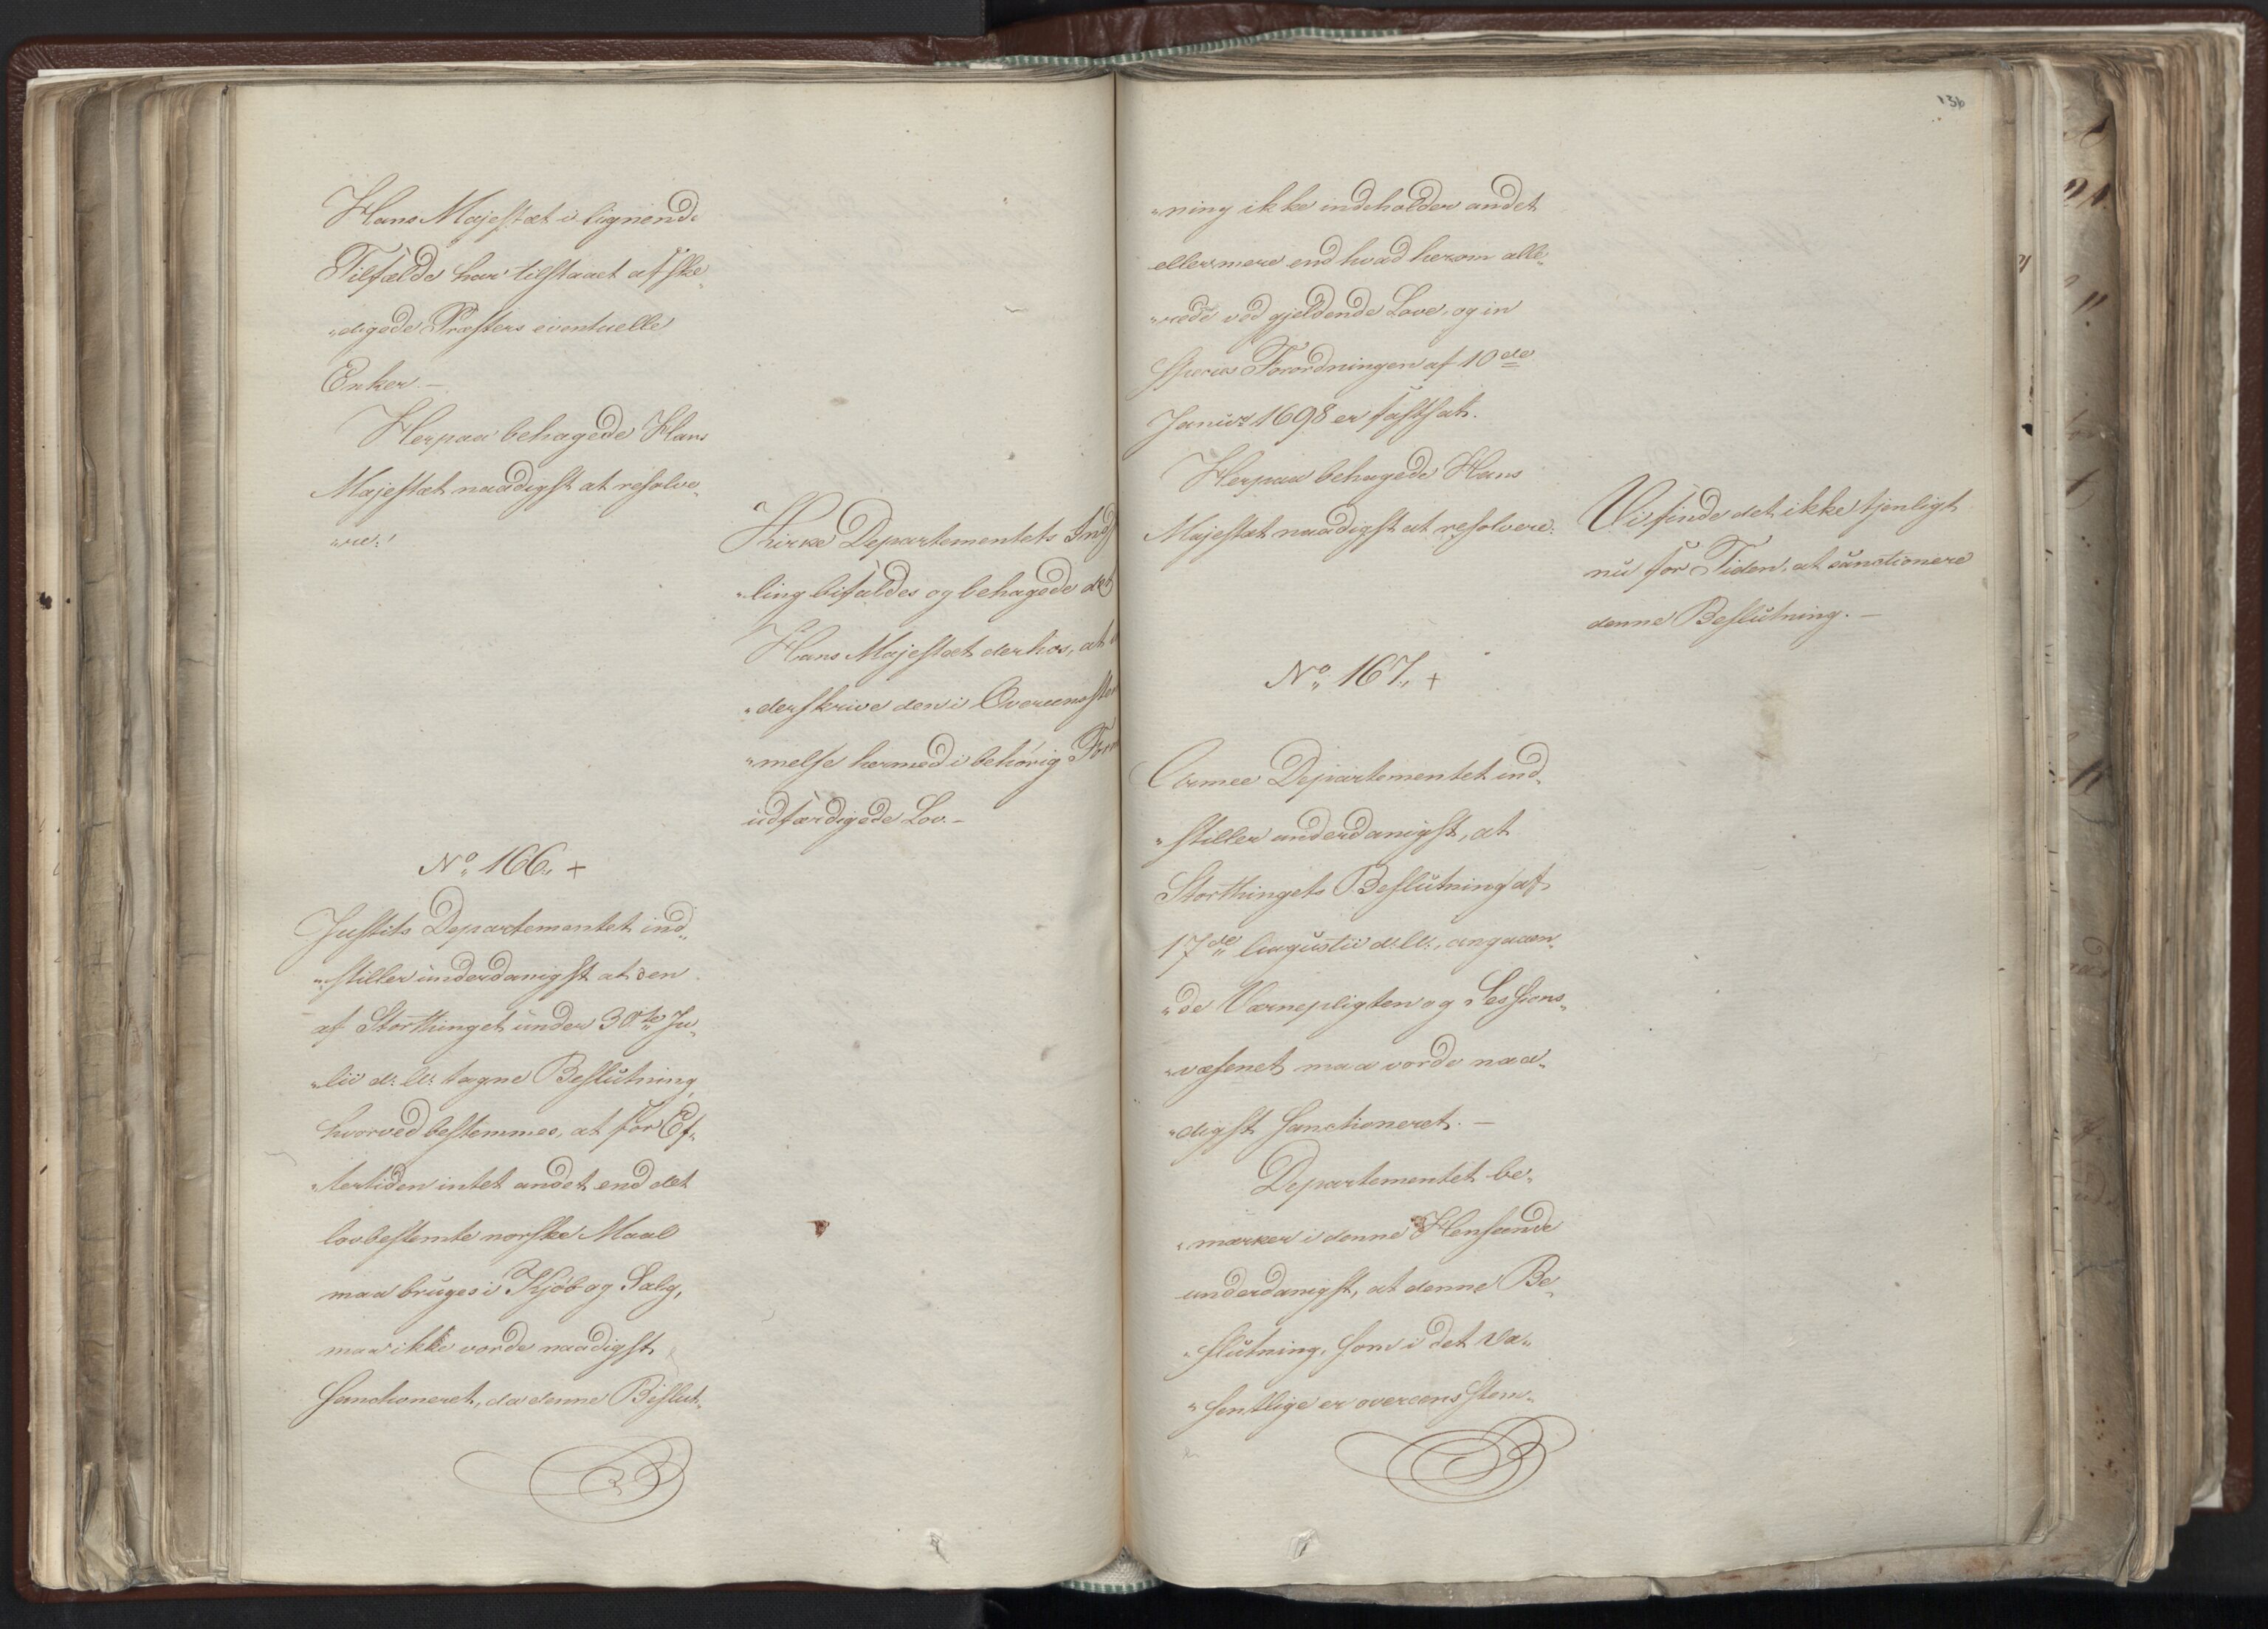 Hans Majestæt i lignende
Tilfælde har tilstaaet afske„
„digede Præsters eventuelle
Enker. —
Herpaa behagede Hans
Majestæt naadigst at resolve„
„re:
Kirke Departementets Ind
„ling bifaldes og behagede det
Hans Majestæt derhos, at
„derskrive den i Overeensstem
„melse hermed i behörig Form
udfærdigede Lov. —
No. 166. +
Justits Departementet ind„
„stiller underdanigst at den
af Storthinget under 30te Ju„
„lii d: A: tagne Beslutning,
hvorved bestemmes, at for Ef„
„tertiden intet andet end det
lovbestemte norske Maal
maa bruges i Kjöb og Salg,
maa ikke vorde naadigst
sanctioneret, da denne Beslut„
136
„ning ikke indeholder andet
eller mere end hvad herom alle„
„rede ved gjeldende Love, og in
specie Forordningen af 10de
Januar 1698 er fastsat.
Herpaa behagede Hans
Majestæt naadigst at resolvere:
Vi finde det ikke tjenligt
nu for Tiden, at sanctionere
denne Beslutning. —
No. 167. +
Armee Departementet ind„
„stiller underdanigst, at
Storthingets Beslutning af
17de Augustii d: A:, angaaen„
„de Værnepligten og Sessions„
„væsenet maa vorde naa„
„digst sanctioneret. —
Departementet be„
„mærker i denne Henseende
underdanigst, at denne Be„
„slutning, som i det Væ„
„sentlige er overeensstem„